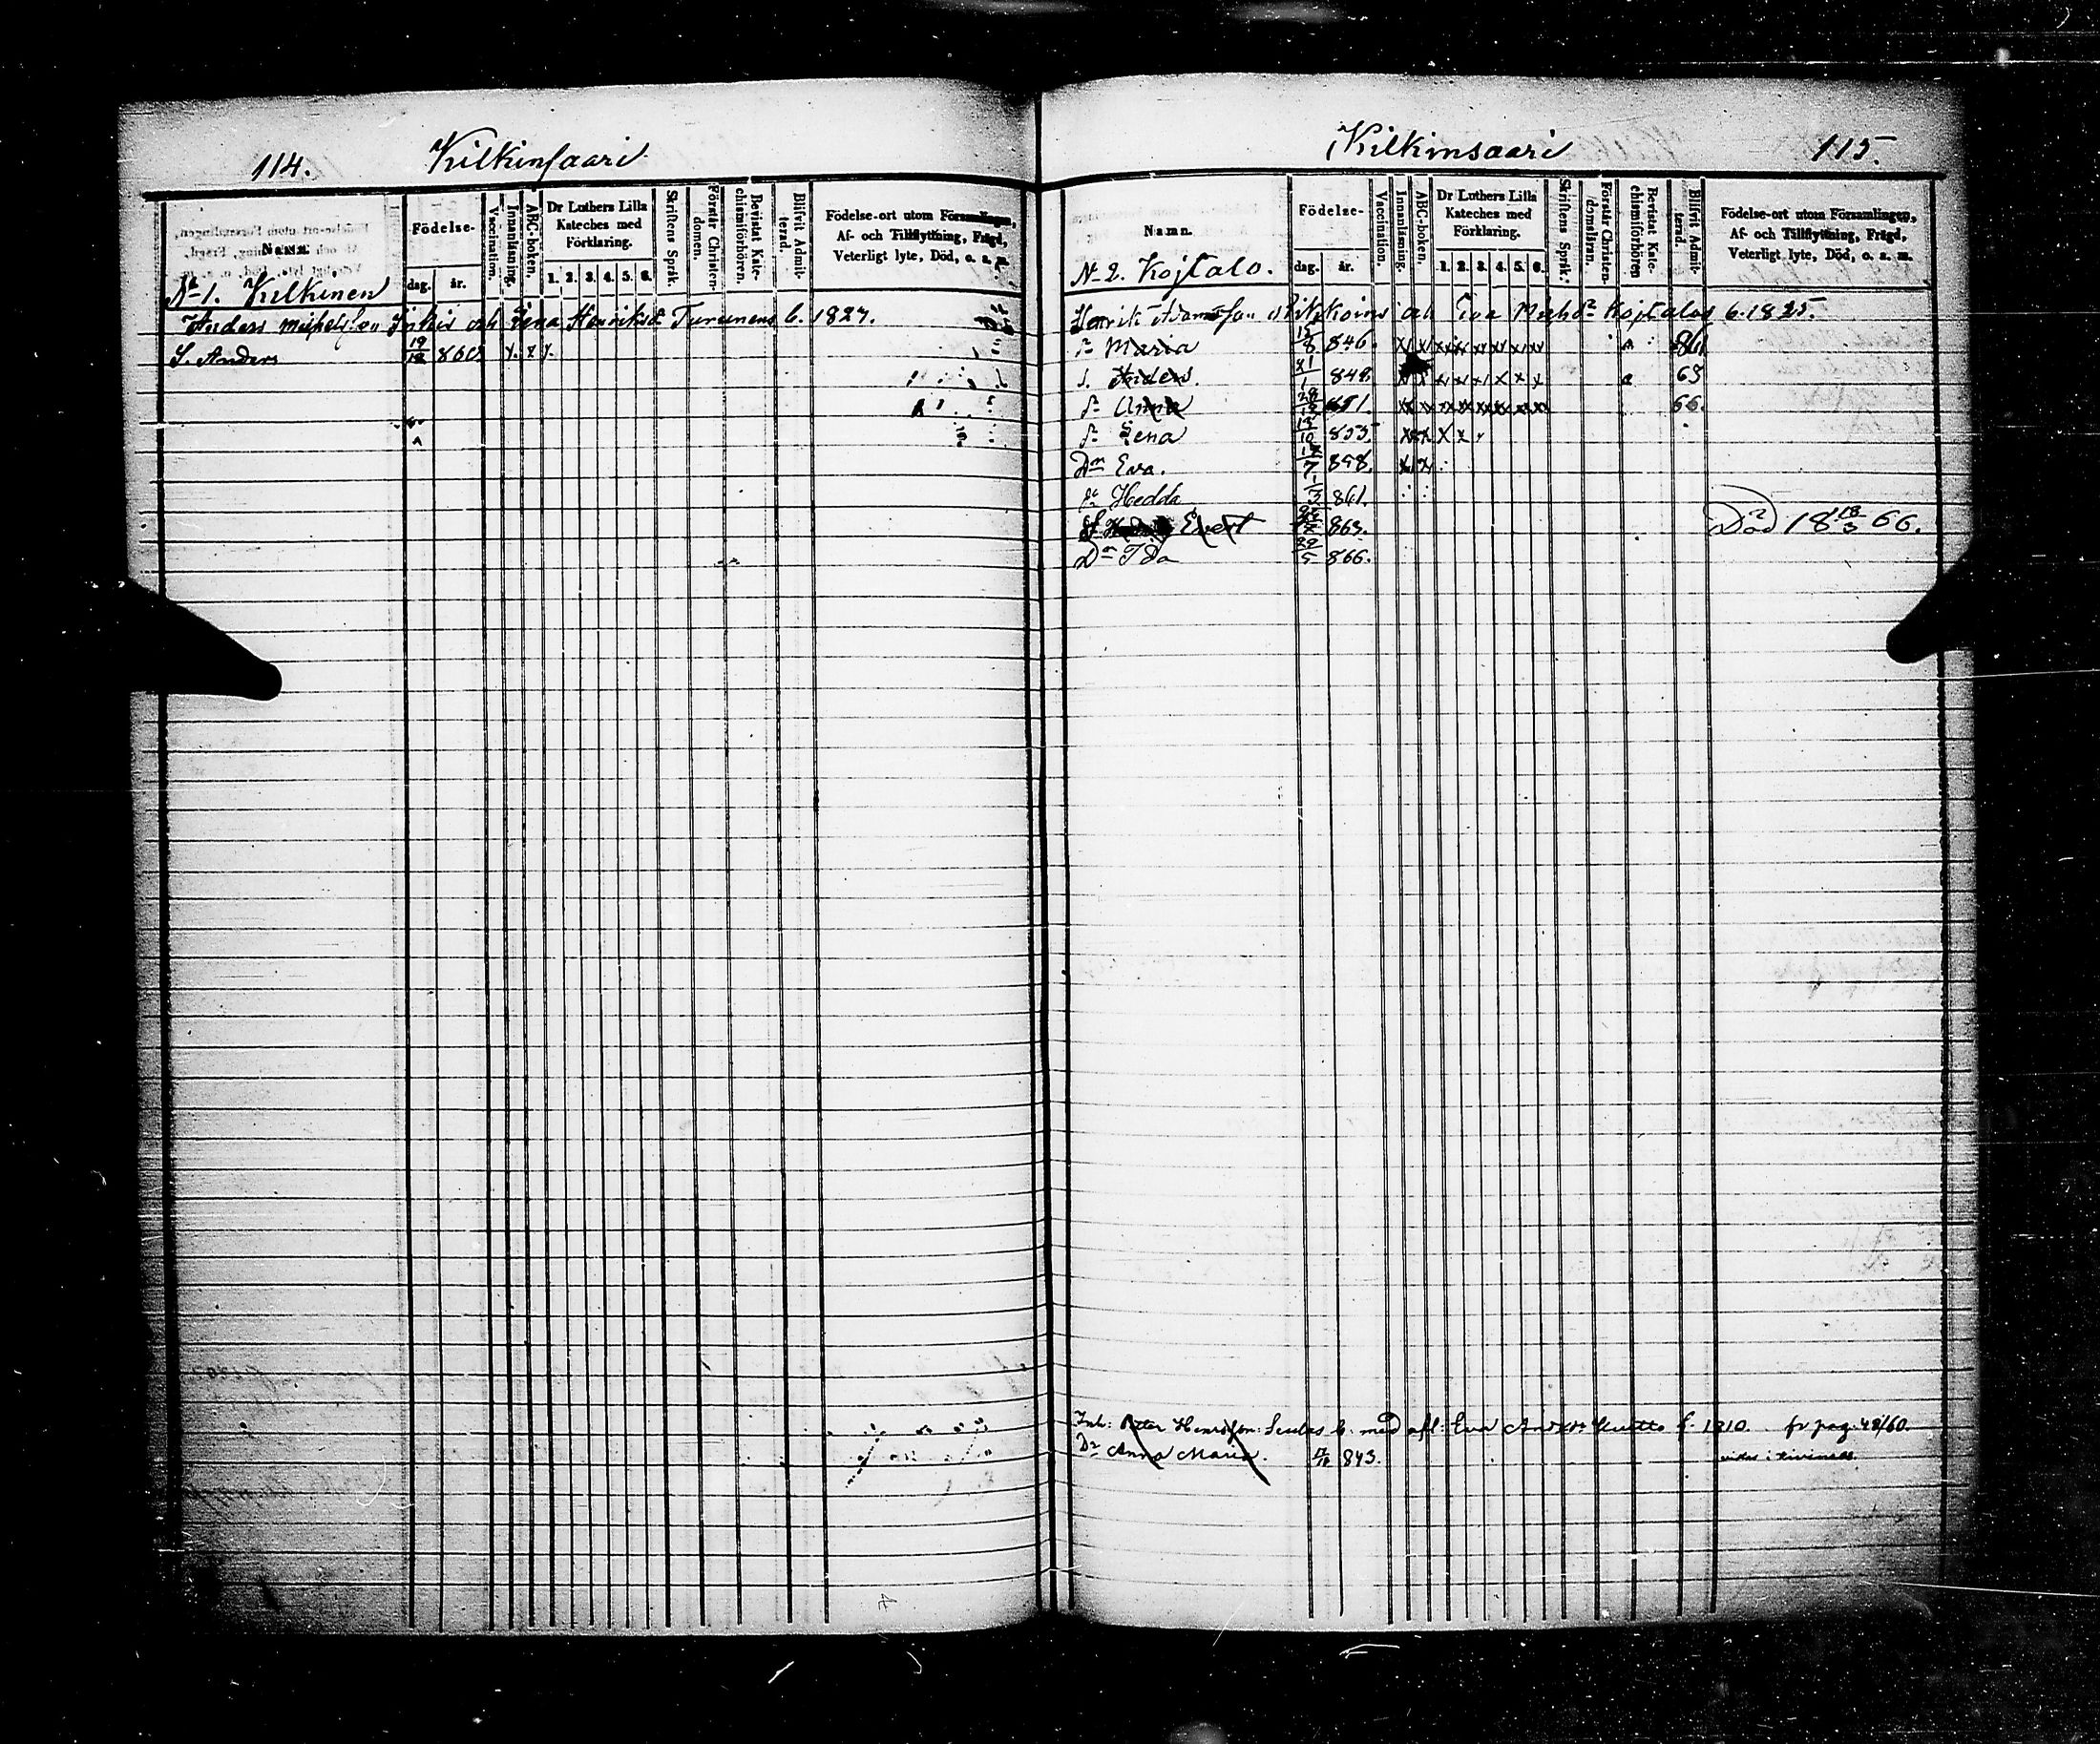 114. Kilkinsaari
Namn.
Födelse-
dag. år.
Vaccination.
Innanläsning.
ABC-boken.
Dr Luthers Lilla Kateches med Förklaring.
1. 2. 3. 4. 5. 6.
Skriftens Språk.
Förstår Christendomen.
Bevistat Katechismiförhören.
Blifvit Admitterad.
Födelse-ort utom Församlingen, Af- och Tillflyttning, Frägd, Veterligt lyte, Död, o. s. m.
No 1. Kilkinen
Anders och Lena Henriksd. Turunens b. 1827.
S. Anders 19/12 860 x. x x.
Kilkinsaari 115.
Namn.
Födelse-
dag. år.
Vaccination.
Innanläsning.
ABC-boken.
Dr Luthers Lilla Kateches med Förklaring.
1. 2. 3. 4. 5. 6.
Skriftens Språk.
Förstår Christendomsläran.
Bevistat Katechismiförhören
Blifvit Admitterad.
Födelse-ort utom Församlingen, Af- och Tillflyttning, Frägd, Veterligt lyte, Död, o. s. m.
N 2. Kojtalo.
Henrik Adamsson och Eva Michd. Kojtalos b. 1825.
Maria 846. 861
s. Anders. 21/1 848. 63
Anna 851. 66.
Lena 855.
Dr Eva. 858.
Hedda 861.
S Evert 863. Död 18 18/3 66.
Dr Ida 29/5 866.
Inh: Peter Henrsson b. med afl: Eva Andersd. f. 1810. fr pag. 48/60.
Dr Anna Maria. 843.